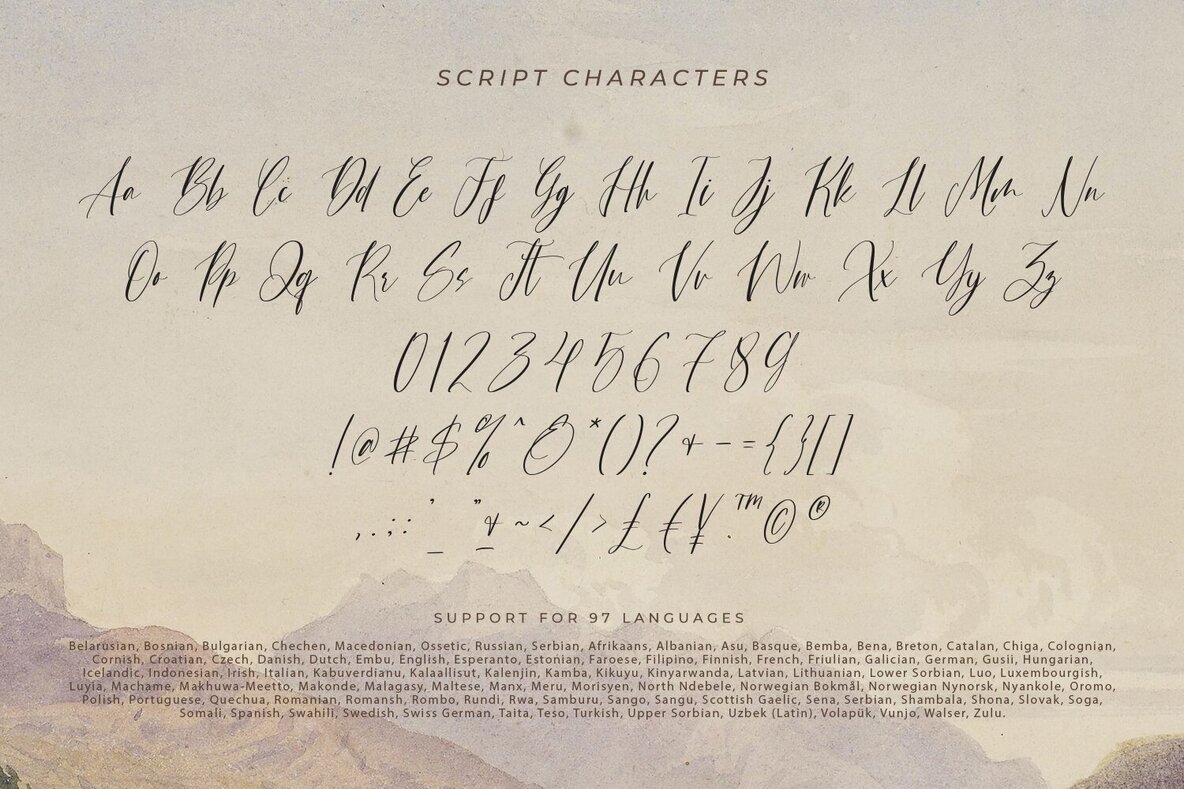 SCRIPT CHARACTERS
Aa Bb Cc Dd Ee Ff Gg Hh Ii Jj Kk Ll Mm Nn
Oo Pp Qq Rr Ss Tt Uu Vv Ww Xx Yy Zz
0123456789
!@#$%^&*()?+-={}[]
,.;:'_"±~</>£€¥.™©®
SUPPORT FOR 97 LANGUAGES
Belarusian, Bosnian, Bulgarian, Chechen, Macedonian, Ossetic, Russian, Serbian, Afrikaans, Albanian, Asu, Basque, Bemba, Bena, Breton, Catalan, Chiga, Colognian,
Cornish, Croatian, Czech, Danish, Dutch, Embu, English, Esperanto, Estonian, Faroese, Filipino, Finnish, French, Friulian, Galician, German, Gusii, Hungarian,
Icelandic, Indonesian, Irish, Italian, Kabuverdianu, Kalaallisut, Kalenjin, Kamba, Kikuyu, Kinyarwanda, Latvian, Lithuanian, Lower Sorbian, Luo, Luxembourgish,
Luyia, Machame, Makhuwa-Meetto, Makonde, Malagasy, Maltese, Manx, Meru, Morisyen, North Ndebele, Norwegian Bokmål, Norwegian Nynorsk, Nyankole, Oromo,
Polish, Portuguese, Quechua, Romanian, Romansh, Rombo, Rundi, Rwa, Samburu, Sango, Sangu, Scottish Gaelic, Sena, Serbian, Shambala, Shona, Slovak, Soga,
Somali, Spanish, Swahili, Swedish, Swiss German, Taita, Teso, Turkish, Upper Sorbian, Uzbek (Latin), Volapük, Vunjo, Walser, Zulu.